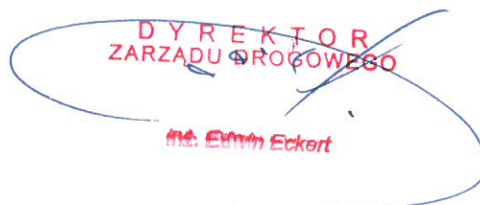 DYREKTOR
ZARZĄDU DROGOWEGO
inż. Edwin Eckert